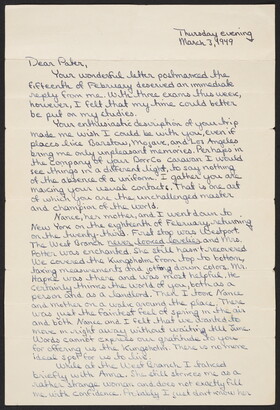 Thursday evening
March 3, 1949
Dear Peter,
Your wonderful letter postmarked the
fifteenth of February deserved an immediate
reply from me. With three exams this week,
however, I felt that my time could better
be put on my studies.
Your enthusiastic description of your trip
made me wish I could be with you, even if
places like Barstow, Mojave, and Los Angeles
bring me only unpleasant memories. Perhaps in
the company of your DorrCo caravan I would
see things in a different light, to say nothing
of the absence of a uniform. I gather you are
making your usual contacts. That is one art
of which you are the unchallenged master
and champion of the world.
Nance, her mother, and I went down to
New York on the eighteenth of February, returning
on the twenty-third. First stop was Westport.
The West Branch never looked lovelier and Mrs.
Potter was enchanted. She still hasn't recovered.
We covered the Kingsnoth from top to bottom,
taking measurements and jotting down colors. Mr.
was there and was most helpful. He
certainly thinks the world of you, both as a
person and as a landlord. Then I took Nance
and mother on a walk around the place. There
was just the faintest fresh of spring in the air
and both Nance and I felt that we wanted to
move in right away without waiting till June.
Words cannot express our gratitude to you
for offering us the Kingsnoth. There is no more
ideal spot for us to live.
While at the West Branch I talked
briefly with Anna. She still strikes me as a
rather strange woman and does not exactly fill
me with confidence. Probably I just don't know her